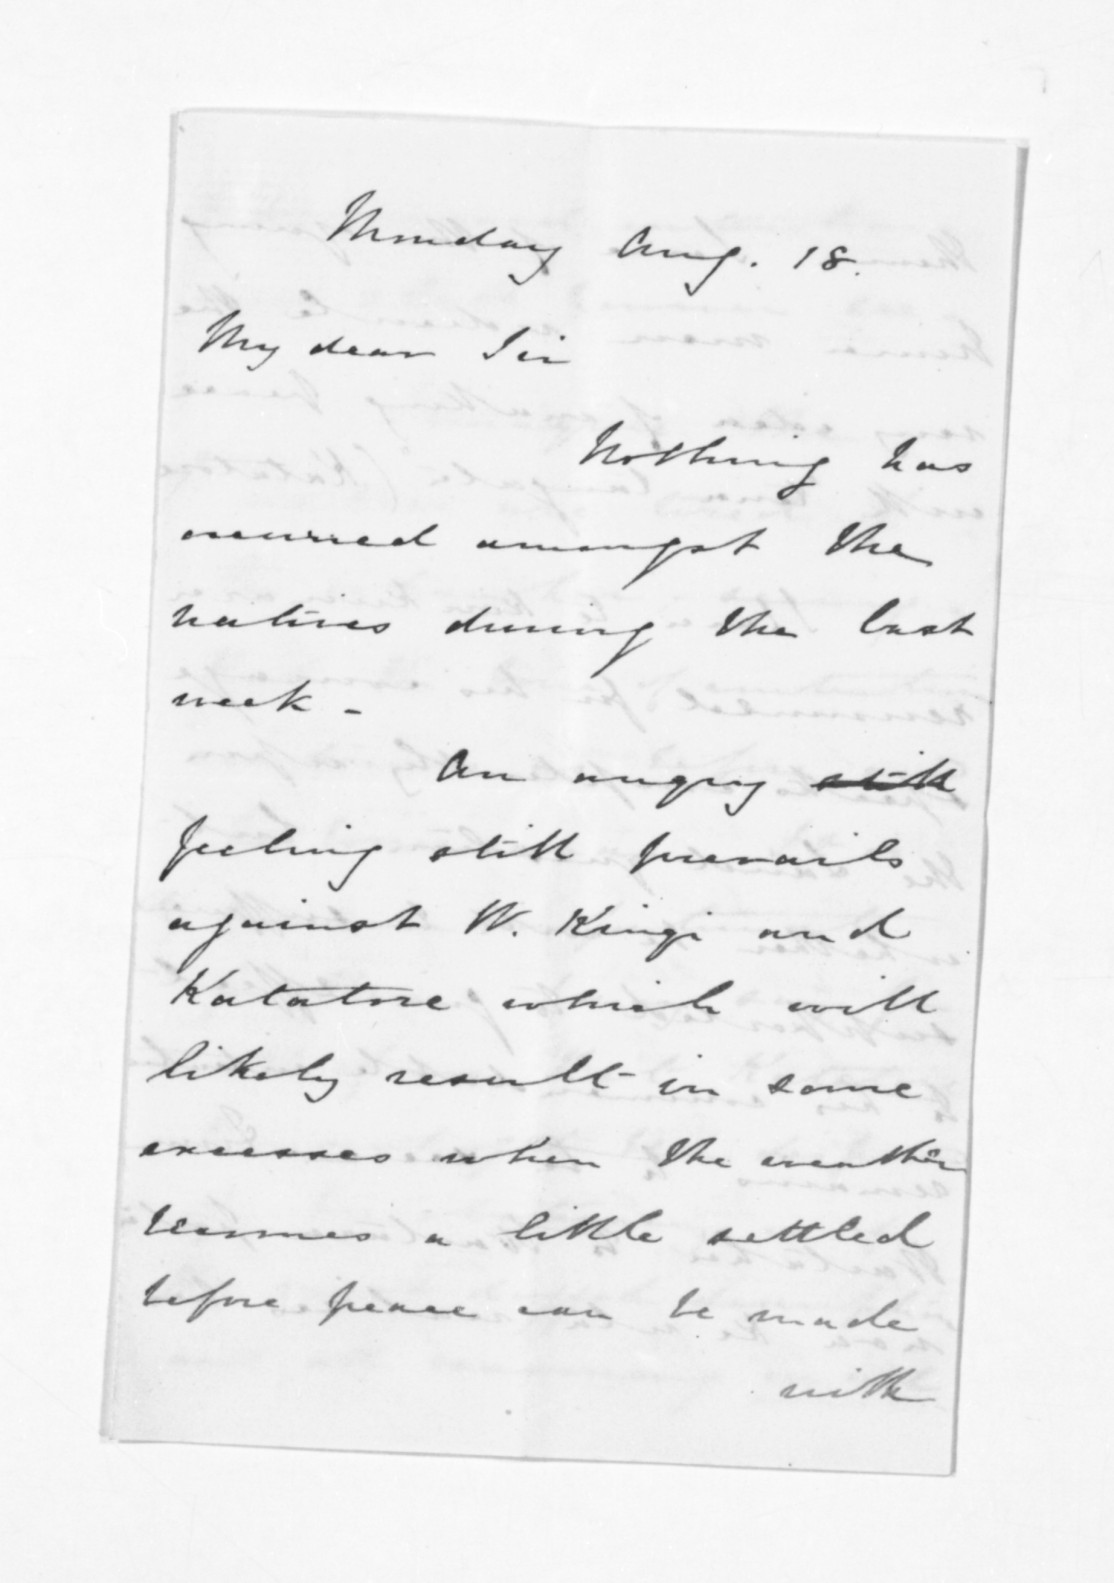 Monday Aug. 18.
My dear Sir
Nothing has
occurred amongst the
natives during the last
week -
An angry still
feeling still prevails
against W. Kingi and
Katatore which will
likely result in some
excesses when the weather
becomes a little settled
before peace can be made
with